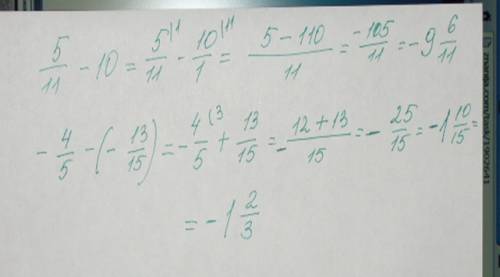 5/11 - 10 = 5/11 - 10/1 = (5 - 110)/11 = -105/11 = -9 6/11
- 4/5 - (- 13/15) = - 4/5 + 13/15 = - (12 + 13)/15 = - 25/15 = -1 10/15 =
= -1 2/3